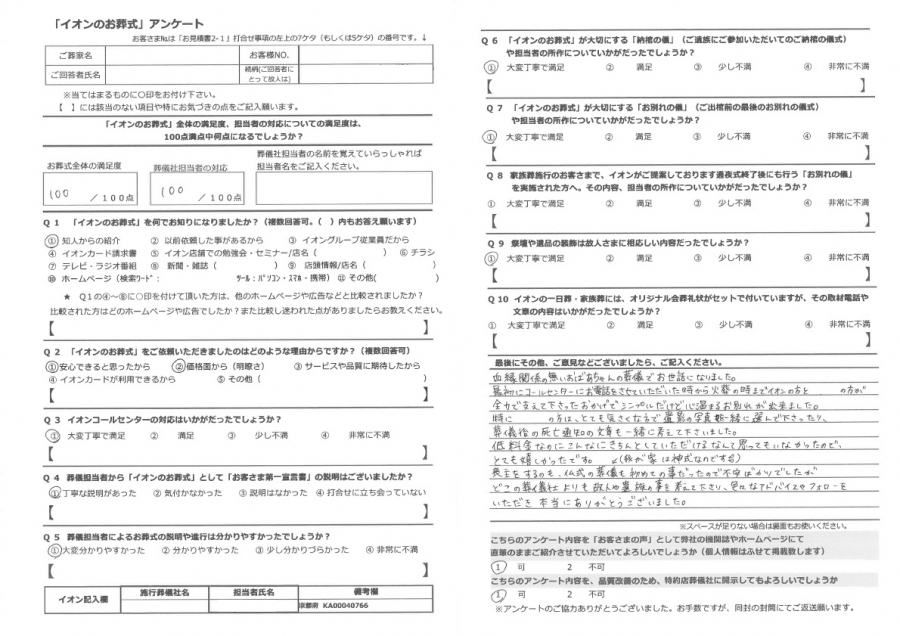 「イオンのお葬式」アンケート
お客さま№は「お見積書2-1」打合せ事項の左上の7ケタ（もしくは5ケタ）の番号です。↓
ご葬家名 お客様NO.
ご回答者氏名 続柄(ご回答者にとって故人は)
※当てはまるものに○印をお付け下さい。
【　】には該当のない項目や特にお気づきの点をご記入願います。
「イオンのお葬式」全体の満足度、担当者の対応についての満足度は、
100点満点中何点になるでしょうか？
お葬式全体の満足度 葬儀社担当者の対応 葬儀社担当者の名前を覚えていらっしゃれば
担当者名をご記入ください。
100 ／100点 100 ／100点
Q１　「イオンのお葬式」を何でお知りになりましたか？（複数回答可。（　）内もお答え願います）
① 知人からの紹介　② 以前依頼した事があるから　③ イオングループ従業員だから
④ イオンカード請求書　⑤ イオン店舗での勉強会・セミナー/店名（　）　⑥ チラシ
⑦ テレビ・ラジオ番組　⑧ 新聞・雑誌（　）　⑨ 店頭情報/店名（　）
⑩ ホームページ（検索ﾜｰﾄﾞ：　ﾂｰﾙ：ﾊﾟｿｺﾝ・ｽﾏﾎ・携帯）⑪ その他（　）
★　Q１の④～⑧に○印を付けて頂いた方は、他のホームページや広告などと比較されましたか？
比較された方はどのホームページや広告でしたか？また比較し迷われた点がありましたらお教えください。
【　】
Q２　「イオンのお葬式」をご依頼いただきましたのはどのような理由からですか？（複数回答可）
①安心できると思ったから　②価格面から（明瞭さ）　③ サービスや品質に期待したから
④ イオンカードが利用できるから　⑤ その他（　）
【　】
Q３　イオンコールセンターの対応はいかがだったでしょうか？
① 大変丁寧で満足　② 満足　③ 少し不満　④ 非常に不満
【　】
Q４　葬儀担当者から「イオンのお葬式」として「お客さま第一宣言書」の説明はございましたか？
①丁寧な説明があった　② 気付かなかった　③ 説明はなかった　④ 打合せに立ち会っていない
【　】
Q５　葬儀担当者によるお葬式の説明や進行は分かりやすかったでしょうか？
①大変分かりやすかった　② 分かりやすかった　③ 少し分かりづらかった　④ 非常に不満
【　】
イオン記入欄 施行葬儀社名 担当者氏名 備考欄
京都府 KA00040766
Q６　「イオンのお葬式」が大切にする「納棺の儀」（ご遺族にご参加いただいてのご納棺の儀式）
や担当者の所作についていかがだったでしょうか？
① 大変丁寧で満足　② 満足　③ 少し不満　④ 非常に不満
【　】
Q７　「イオンのお葬式」が大切にする「お別れの儀」（ご出棺前の最後のお別れの儀式）
や担当者の所作についていかがだったでしょうか？
① 大変丁寧で満足　② 満足　③ 少し不満　④ 非常に不満
【　】
Q８　家族葬施行のお客さまで、イオンがご提案しております通夜式終了後にも行う「お別れの儀」
を実施された方へ。その内容、担当者の所作についていかがだったでしょうか？
① 大変丁寧で満足　② 満足　③ 少し不満　④ 非常に不満
【　】
Q９　祭壇や遺品の装飾は故人さまに相応しい内容だったでしょうか？
① 大変丁寧で満足　② 満足　③ 少し不満　④ 非常に不満
【　】
Q10　イオンの一日葬・家族葬には、オリジナル会葬礼状がセットで付いていますが、その取材電話や
文章の内容はいかがだったでしょうか？
① 大変丁寧で満足　② 満足　③ 少し不満　④ 非常に不満
【　】
最後にその他、ご意見などございましたら、ご記入ください。
血縁関係の無いおばあちゃんの葬儀でお世話になりました。
最初にコールセンターにお電話をさせていただいた時から火葬の時までイオンの方と　の方が
全力で支えて下さったおかげでシンプルだけど心温まるお別れが出来ました。
特に　の方は、とても気さくな方で遺影の写真を一緒に選んで下さったり、
葬儀後の死亡通知の文章も一緒に考えて下さいました。
低料金なのにこんなにきちんとしていただけるなんて思ってもいなかったので、
とても嬉しかったです。（我が家は神式なのですが）
喪主をするのも、仏式の葬儀も初めての事だったので不安ばかりでしたが
どこの葬儀社よりも故人や遺族の事を考えて下さり、色々なアドバイスやフォローを
いただき本当にありがとうございました。
※スペースが足りない場合は裏面もお使いください。
こちらのアンケート内容を「お客さまの声」として弊社の機関誌やホームページにて
直筆のままご紹介させていただいてよろしいでしょうか（個人情報はふせて掲載致します）
1　可　2　不可
こちらのアンケート内容を、品質改善のため、特約店葬儀社に開示してもよろしいでしょうか
1　可　2　不可
※アンケートのご協力ありがとうございました。お手数ですが、同封の封筒にてご返送願います。